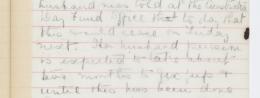 husband was told at the
Day Fund Office that to day that
this would cease on Friday
next. The husband pension
is expected to take about
two months to fix up &
until this has been done